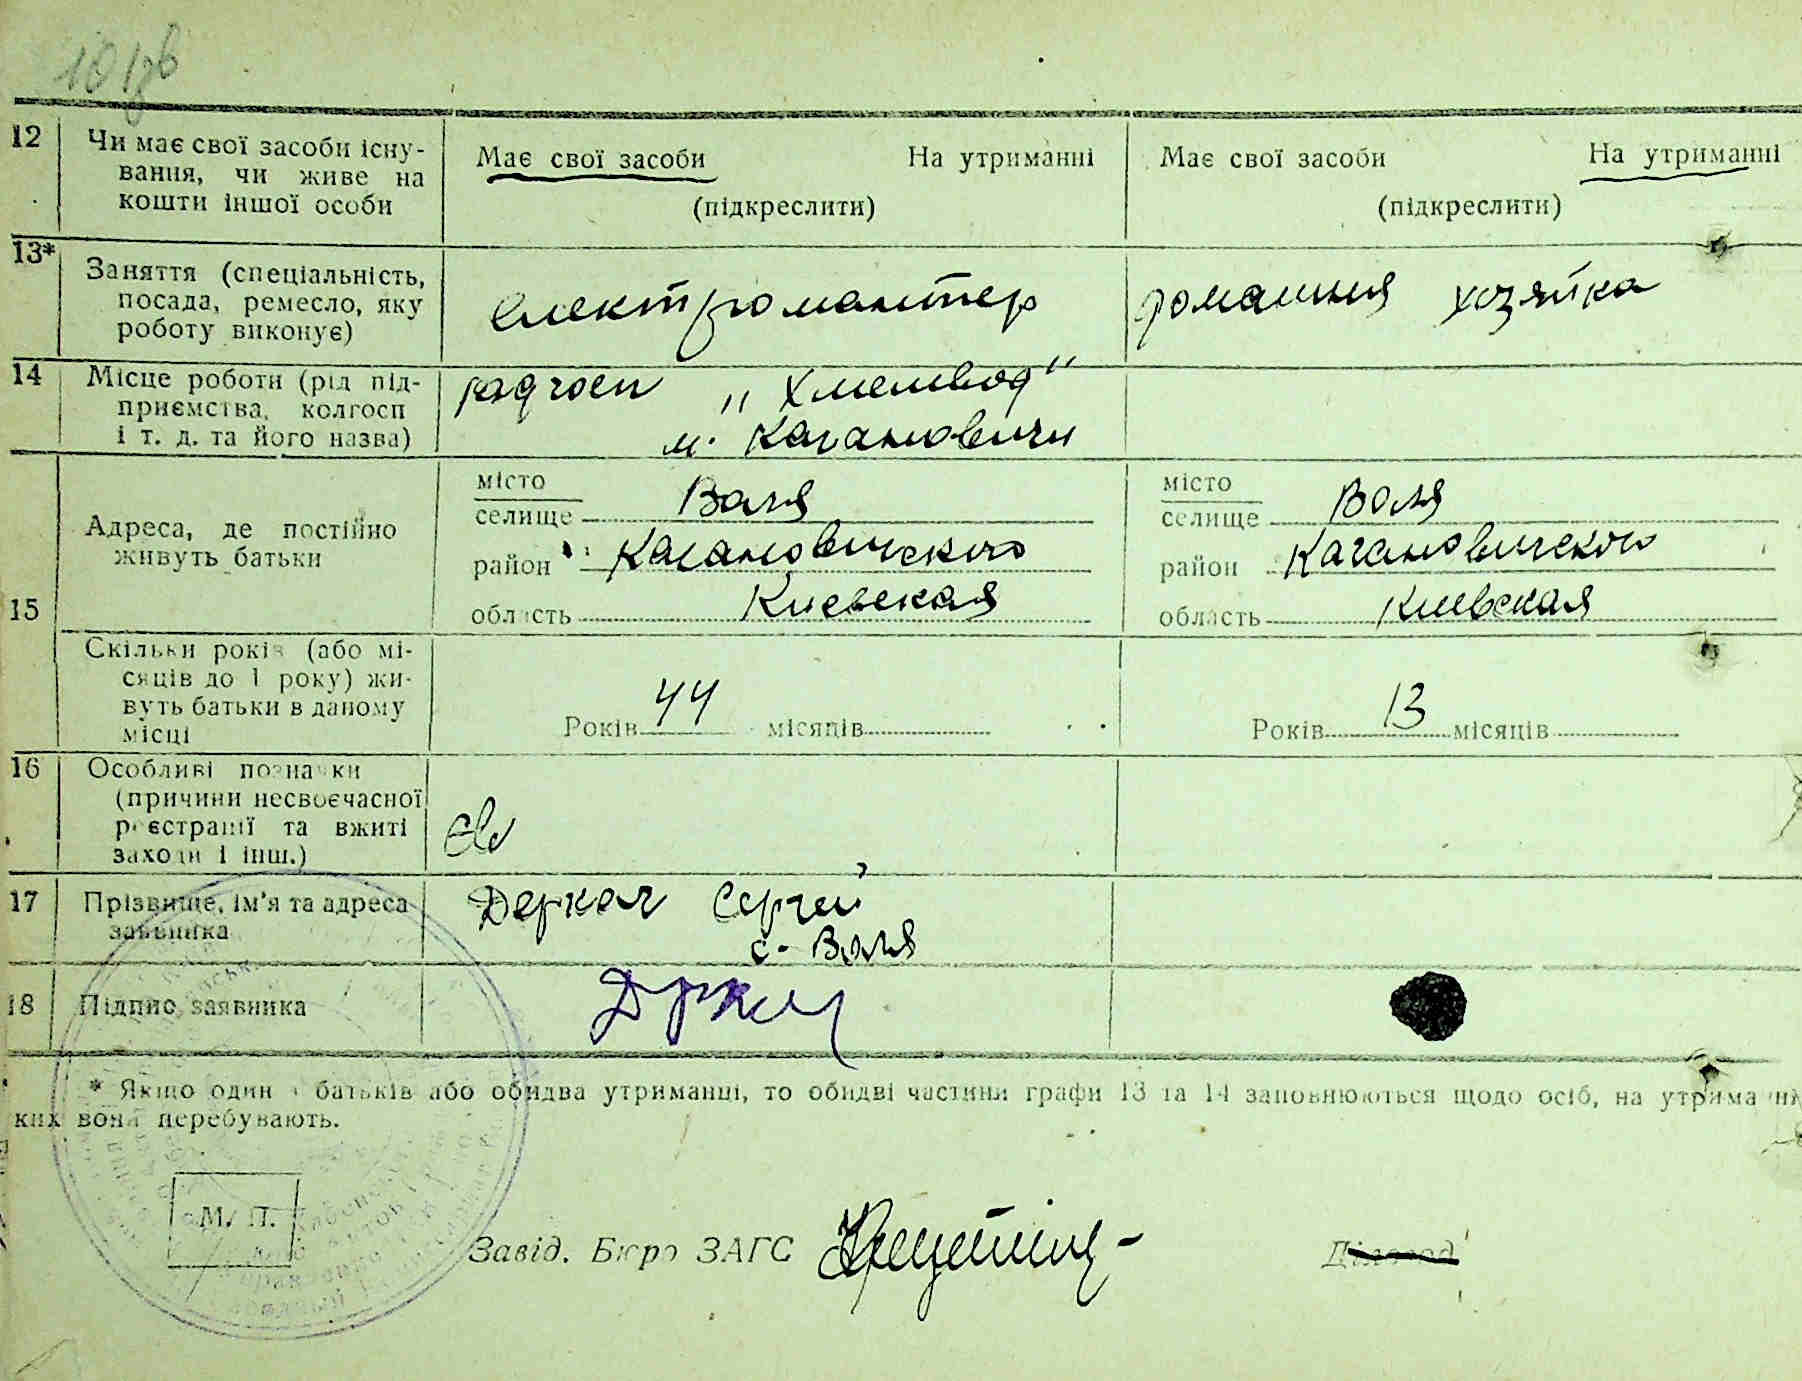 12 Чи має свої засоби існу-
вання, чи живе на
кошти іншої особи
Має свої засоби На утриманні
(підкреслити)
Має свої засоби На утриманні
(підкреслити)
13* Заняття (спеціальність,
посада, ремесло, яку
роботу виконує)
електромантер
домашняя хозяйка
14 Місце роботи (рід під-
приємства, колгосп
і т. д. та його назва)
радгосп „Хмельвод"
м. Кагановичи
15 Адреса, де постійно
живуть батьки
місто
селище Воля
район Кагановичского
область Киевская
місто
селище Воля
район Кагановичского
область Киевская
Скільки років (або мі-
сяців до 1 року) жи-
вуть батьки в даному
місці
Років 44 місяців
Років 13 місяців
16 Особливі позначки
(причини несвоєчасної
реєстрації та вжиті
заходи і інш.)
17 Прізвище, ім'я та адреса
заявника
Деркач Сергей
с. Воля
18 Підпис заявника
* Якщо один з батьків або обидва утриманні, то обидві частини графи 13 та 14 заповнюються щодо осіб, на
ких вони перебувають.
М. П.
Завід. Бюро ЗАГС